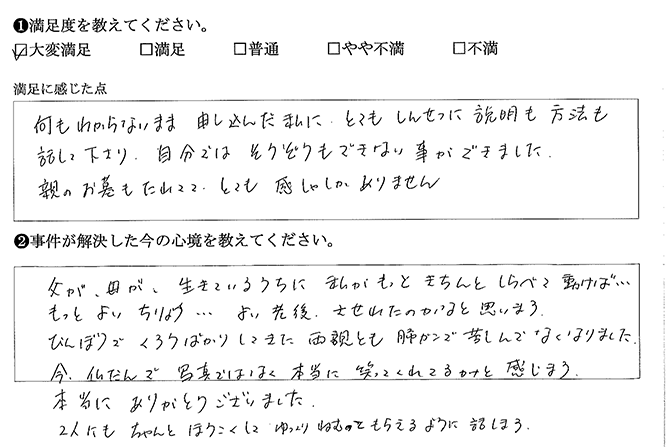 ❶満足度を教えてください。
☑大変満足 □満足 □普通 □やや不満 □不満
満足に感じた点
何もわからないまま 申し込んだ私に、とても しんせつに 説明も 方法も
話して下さり、自分では そうぞうもできない 事ができました。
親の お墓もたれてて、とても 感しゃしか ありません
❷事件が解決した今の心境を教えてください。
父が、母が、生きているうちに 私がもっと きちんと しらべて 動けば…
もっと よい ちりょう… よい 老後、させれたのかなと思います。
びんぼうで くろうばかりしてきた 両親とも 肺ガンで 苦しんで なくなりました。
今、仏だんで 写真ではなく 本当に 笑ってくれてるかなと 感じます。
本当に ありがとうございました。
2人にも ちゃんと ほうこくして ゆっくり ねむって もらえるように 話します。